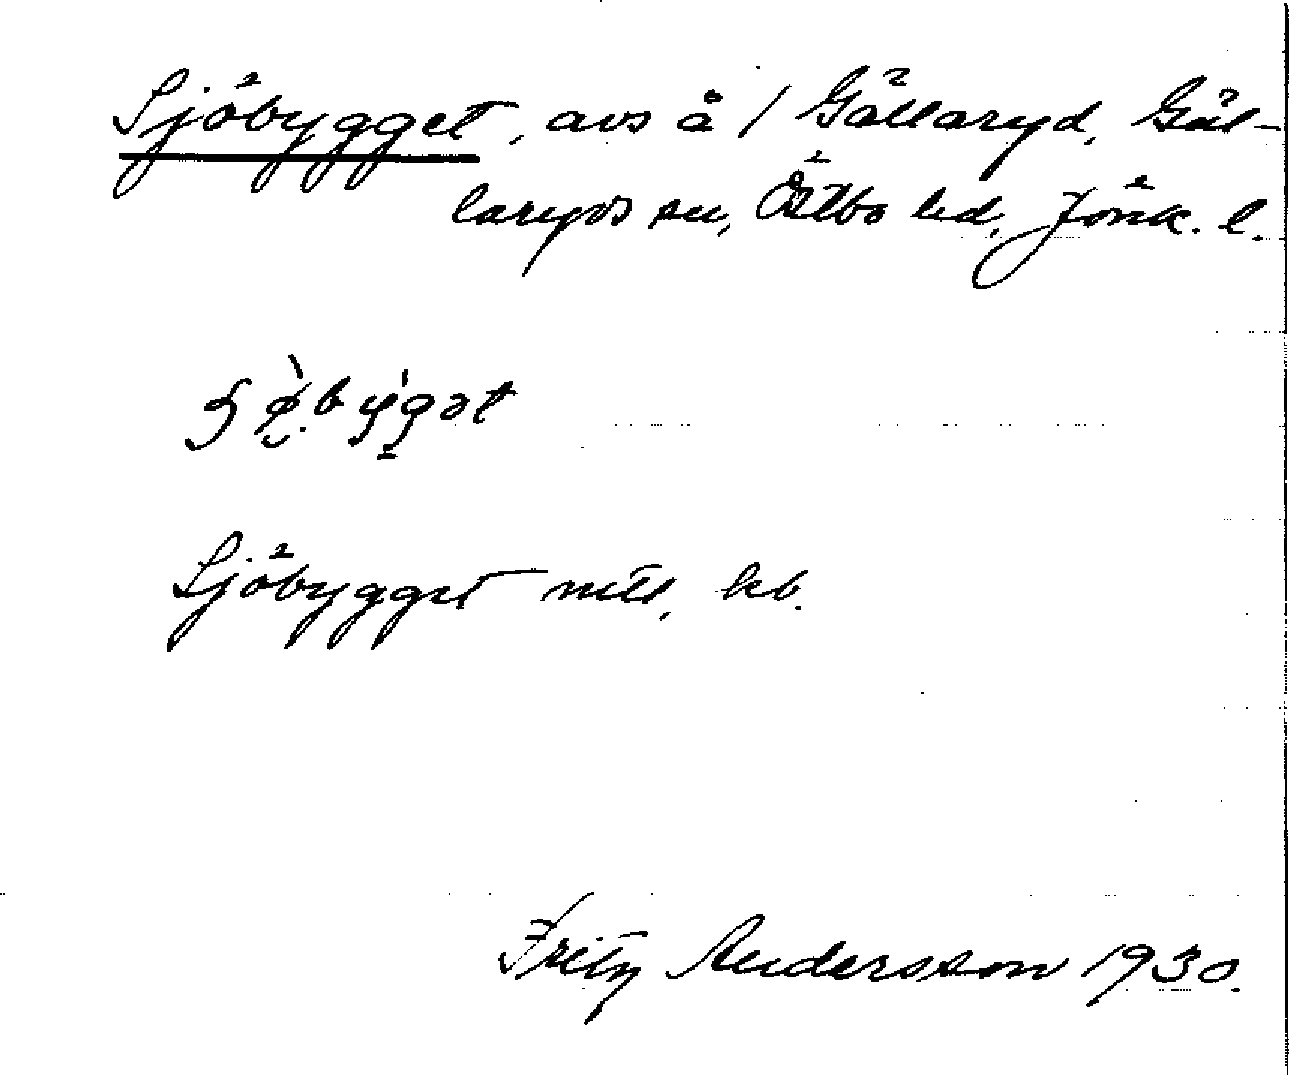 Sjöbygget, avs å / Gällaryd, Gäl-
laryds sn, Östbo hd, Jönk. l.
Sjöbygget ntll, kb.
Fritz Andersson 1930.